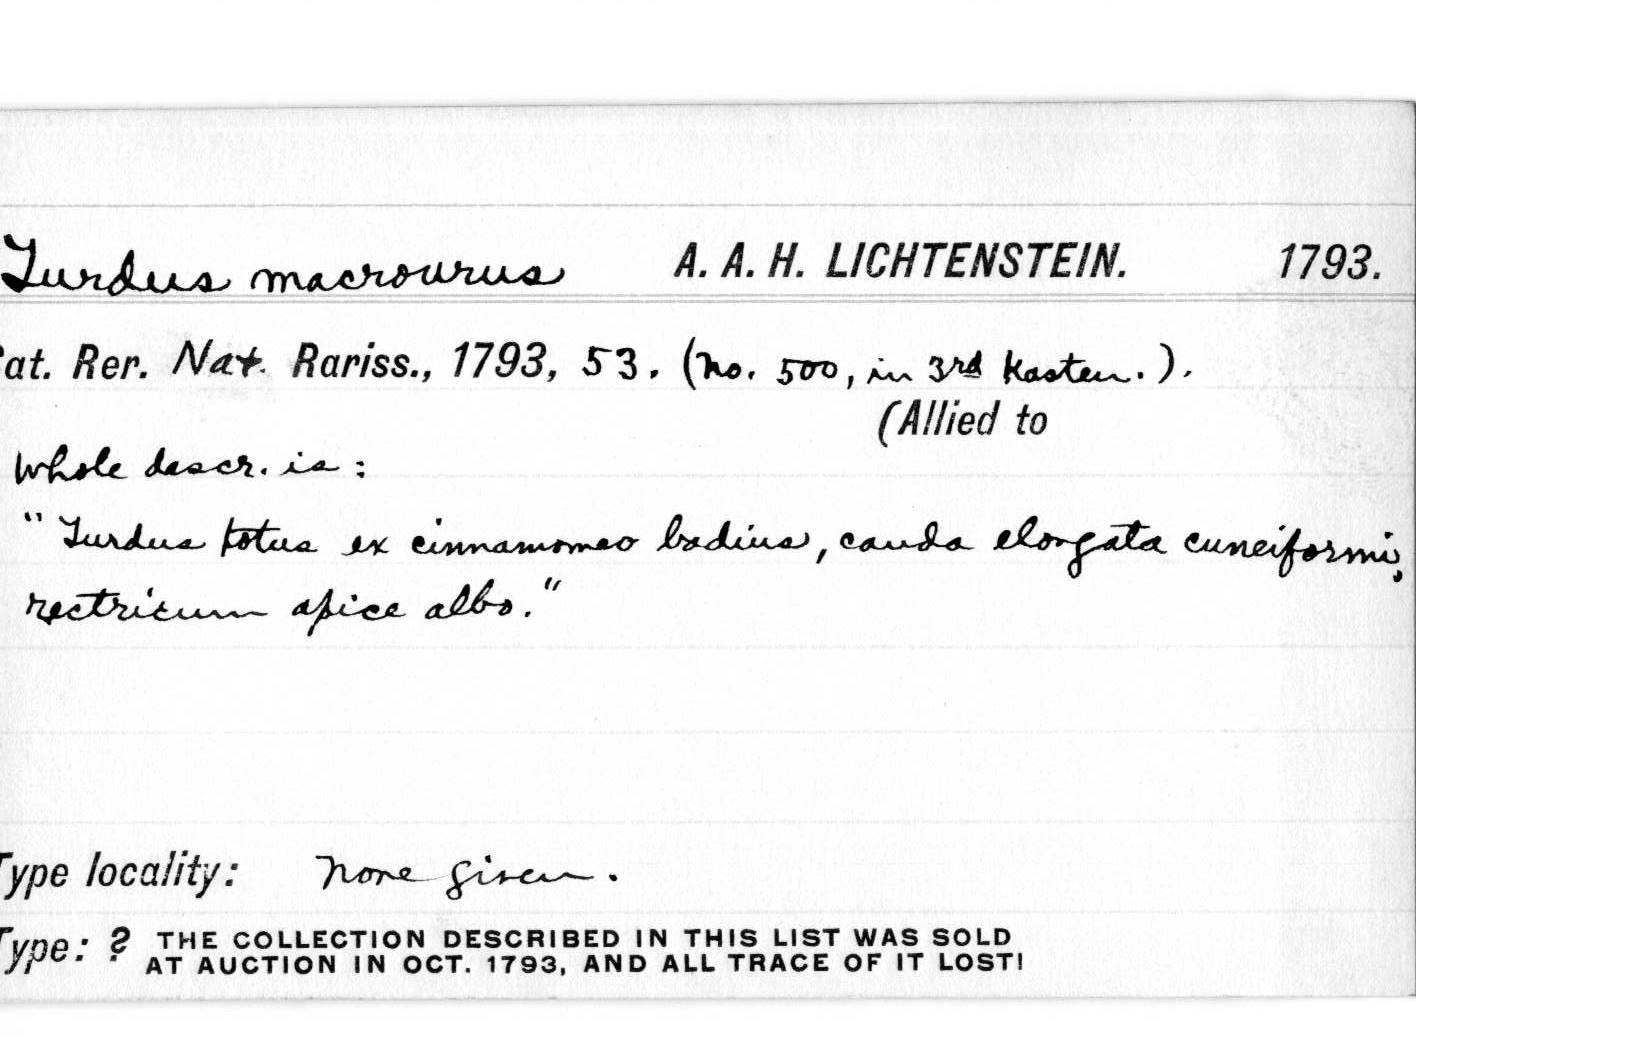 Turdus macrourus A. A. H. LICHTENSTEIN. 1793.
Cat. Rer. Nat. Rariss., 1793, 53. (No. 500, in 3rd Kasten.).
(Allied to
Whole descr. is:
"Turdus totus ex cinnamomeo badius, cauda elongata cuneiformi,
rectricum apice albo."
Type locality: None given.
Type: ? THE COLLECTION DESCRIBED IN THIS LIST WAS SOLD
AT AUCTION IN OCT. 1793, AND ALL TRACE OF IT LOST!